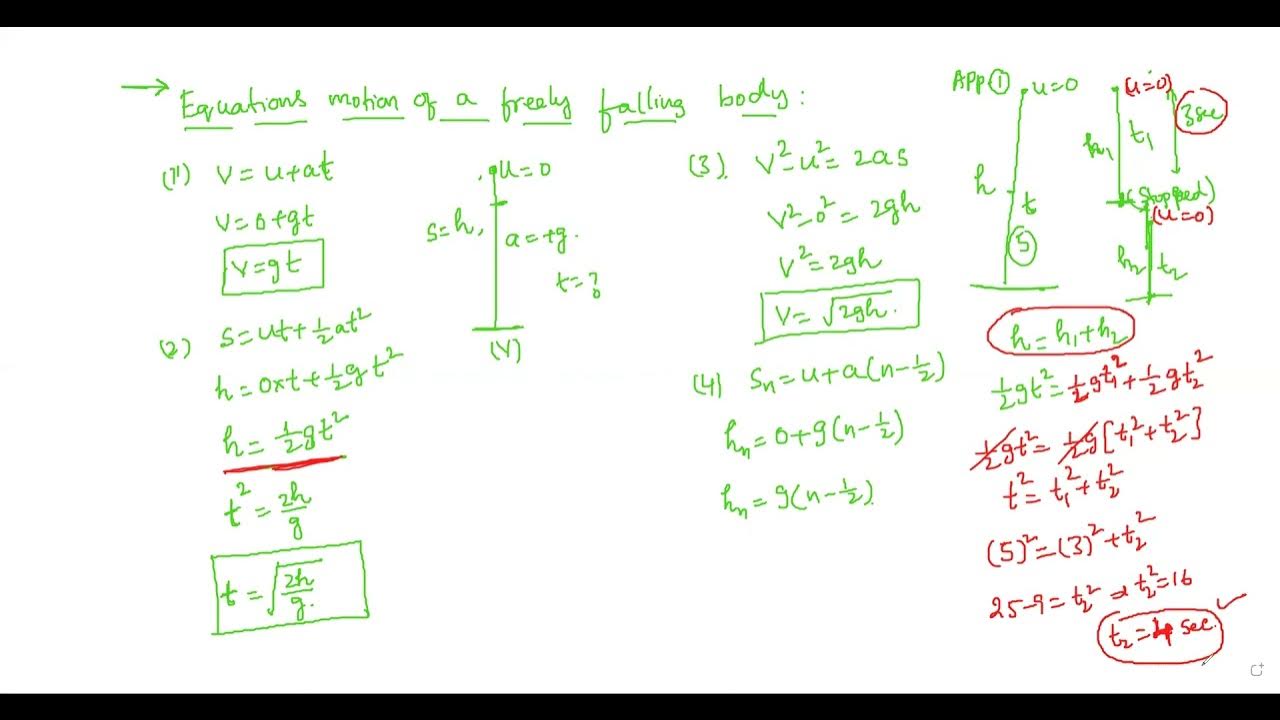 → Equations motion of a freely falling body :
(1) V = u + at
V = 0 + gt
V = gt
(2) S = ut + ½at²
h = 0×t + ½gt²
h = ½gt²
t² = 2h/g
t = √(2h/g).
u = 0
S = h,
a = +g.
t = ?
(V)
(3). V² - u² = 2as
V² - 0² = 2gh
V² = 2gh
V = √2gh.
(4) Sₙ = u + a(n - ½)
hₙ = 0 + g(n - ½)
hₙ = g(n - ½).
APP ① u = 0
h
t
5
(u = 0)
3 sec
h₁ t₁
(stopped)
(u = 0)
h₂ t₂
h = h₁ + h₂
½gt² = ½gt₁² + ½gt₂²
½gt² = ½g[t₁² + t₂²]
t² = t₁² + t₂²
(5)² = (3)² + t₂²
25 - 9 = t₂² ⇒ t₂² = 16
t₂ = 4 sec. ✓